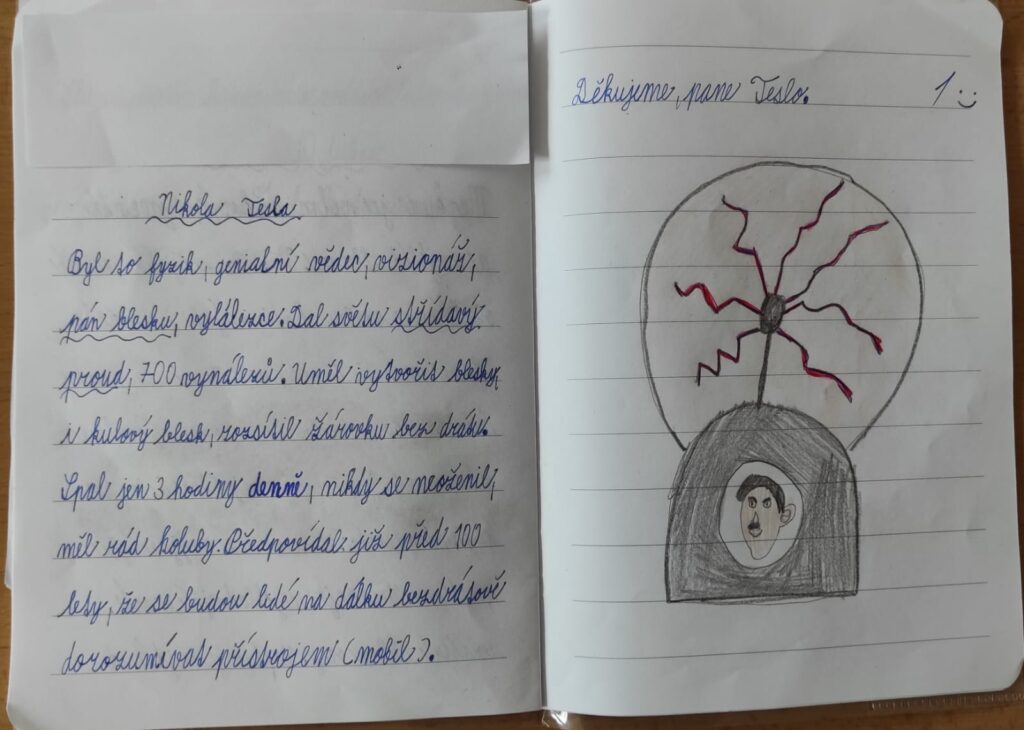 Nikola Tesla
Byl to fyzik, genialní vědec, vizionář,
pán blesku, vylálezce. Dal světu střídavý
proud, 700 vynálezů. Uměl vytvořit blesky,
i kulový blesk, rozsítil žárovku bez drátu.
Spal jen 3 hodiny denně, nikdy se neoženil,
měl rád holuby. Předpovídal již před 100
lety, že se budou lidé, na dálku bezdrátově
dorozumívat přístrojem (mobil).
Děkujeme, pane Teslo. 1